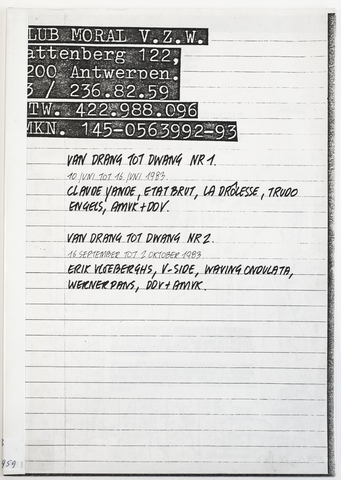 LUB MORAL V.Z.W.
attenberg 122,
200 Antwerpen.
3 / 236.82.59
TW. 422.988.096
MKN. 145-0563992-93
VAN DRANG TOT DWANG NR 1.
10 JUNI TOT 16 JUNI 1983.
CLAUDE YANDE, ETAT BRUT, LA DRÔLESSE, TRUDO
ENGELS, AMVK + DDV.
VAN DRANG TOT DWANG NR 2.
16 SEPTEMBER TOT 2 OKTOBER 1983
ERIK VLIEBERGHS, V-SIDE, WAVING ONDULATA,
WERNER PANS, DDV + AMVK.